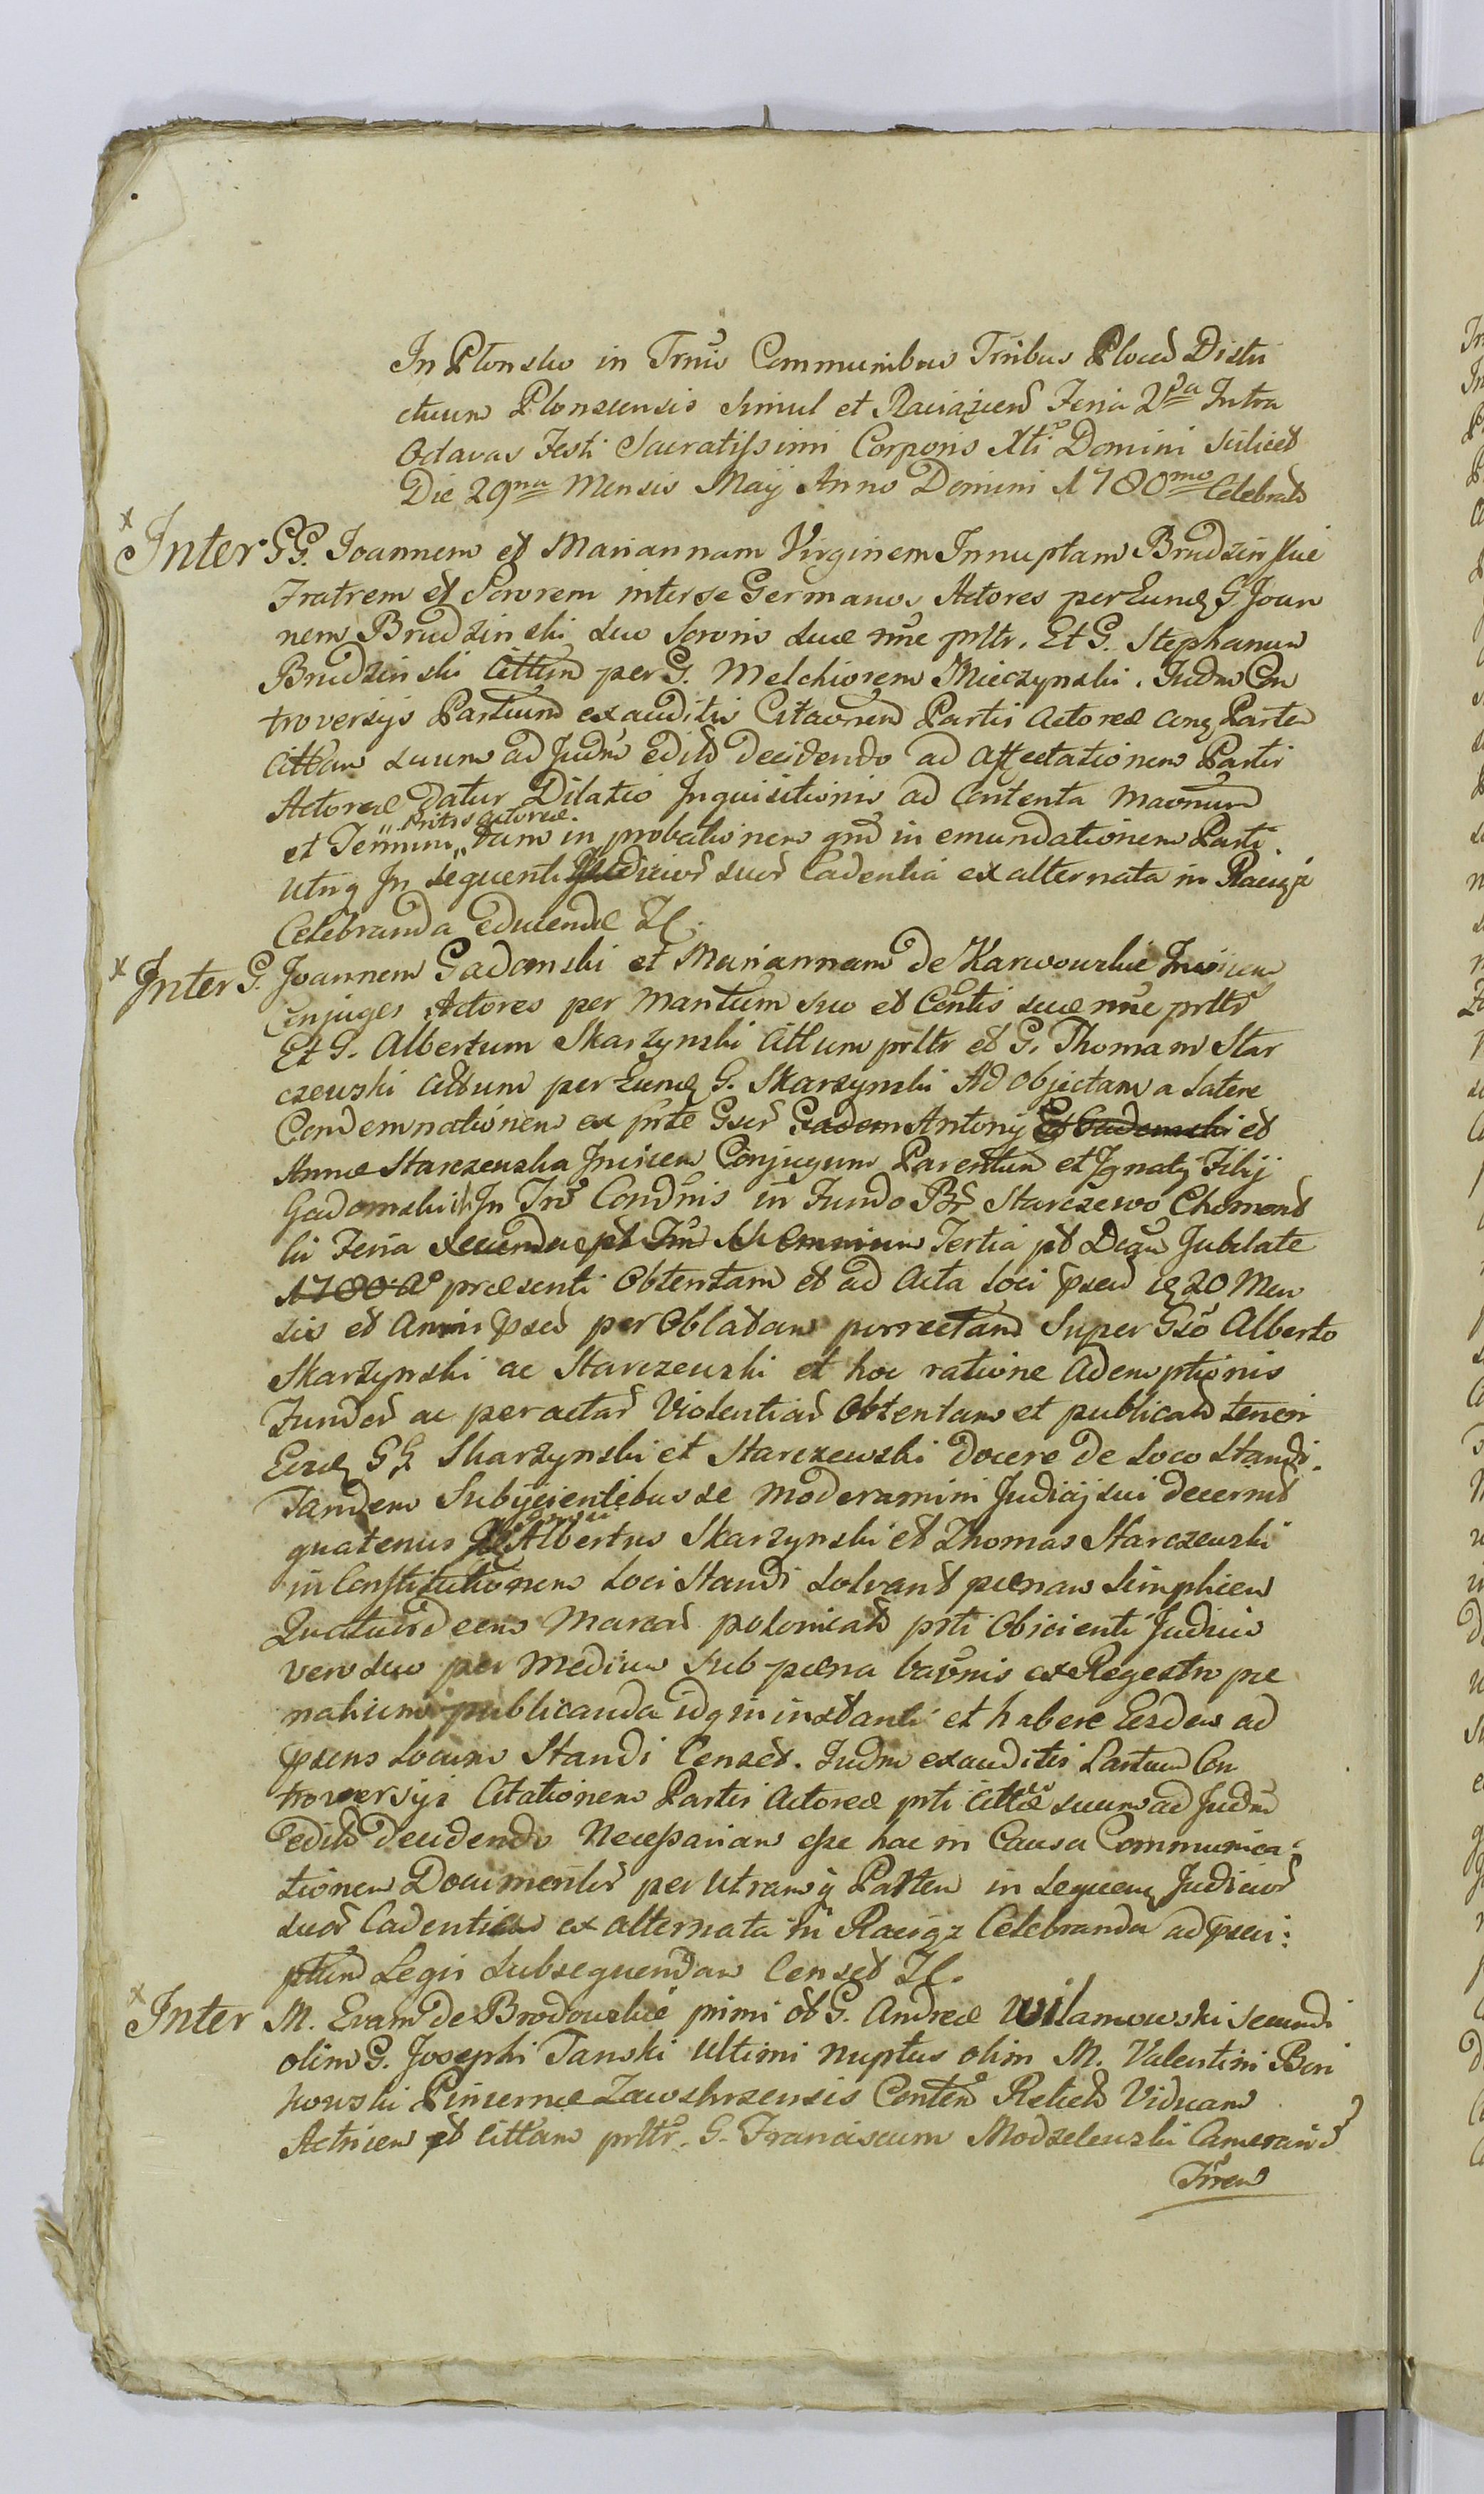 In Płonsko in Trnis Communibus Trribus Plocen Distri
ctuum Plonscensis simul et Raciązien Feria 2da Intra
Octavas Festi Sacratissimi Corporis Xti Domini scilicet
Die 29na Mensis Maij Anno Domini 1780mo Celebrat
Inter GG. Joannem et Mariannam Virginem Innuptam Brudzinskie
Fratrem et Sororem inter se Germanos Actores per Eund G Joan
nem Brudzinski suo Sororis suae nne prltr. Et G. Stephanum
Brudzinski Cittum per G. Melchiorem Mieczynski. Judm Con
troversijs Partium exauditis Citaonem Partis Actoreae Partem
Cittam suum ad Judm decidendo ad affectationem Partis
Actoreae datur Dilatio Inquisitionis ad Contenta
Prtis Actoreae
et Termini tam in probationem qm in emundationem Parti
utrq In sequenti Judicior suor Cadentia ex alternata in Raciąż
Celebranda educendae
Inter G. Joannem Gadomski et Mariannam de Karwowskie Invicem
Conjuges Actores per Maritum suo et Contis suae nne prltr
Et G. Albertum Skarzynski Cittum prltr et G. Thomam Star
czewski Cittum per Eund G. Skarzynski Ad Objectam a latere
Condemnationem ex prte Gser Gadom Antonij Et Gadomski et
Annae Starczewska Invicem Conjugum Parentum et Ignatij Filij
Gadomskich In Condnis in Fundo Br Starczewo Chomont
ki Feria secunda pt Omnium Tertia pt Dcgm Jubilate
1780 a praesenti Obtentam et ad Acta Loci 20 Men
sis et Anni per Oblatam porrectam Super Gso Alberto
Skarzynski ac Starczewski et hoc ratione Ademptionis
Fundor ac peractar Violentiar Obtentam et publicatam teneri
GG Skarzynski et Starczewski docere de Loco Standi.
Tandem Subijcientibus se moderamini Judicij sui decernit
quatenus Albertus Skarzynski et Thomas Starczewski
in Constitutionem Loci Standi solvant paenam simplicem
Quatuordecem Marcar polonical prti Obicienti Judicio
vero suo per Medium sub paena baonis ex Regestro pae
nalium publicanda idq in instanti et habere Eosdem ad
psens Locum Standi Censet. Judm exauditis Partium Con
troversijs Citationem Partis Actoreae prti Cittae suum ad Judm
decidendo Necessariam esse hac in Causa Communica-
tionem Documentor per utramq Partem in sequen Judicior
suor Cadentia ex alternata in Raciąz Celebranda ad prscri:
ptum Legis subsequendam Censet
Inter M. Evam de Brodowskie primi ot G. Andreae Wilamowski secundi
olim G. Josephi Tanski Ultimi nuptus olim M. Valentini Bon
kowski Pincernae Zawskrzensis Relictam Viduam
Actricem et Cittam prltr. G. Franciscum Modzelewski Cameran
Trren